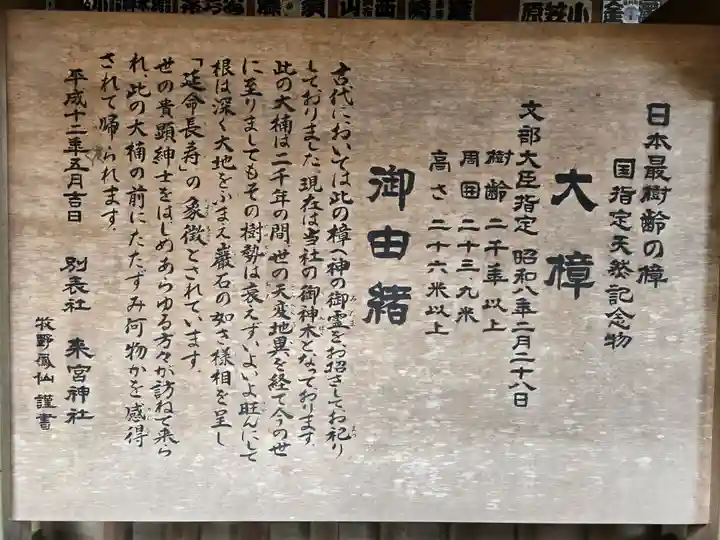 日本最樹齢の樟
国指定天然記念物
大樟
文部大臣指定 昭和八年二月二十八日
樹齢 二千年以上
周囲 二十三.九米
高さ 二十六米以上
御由緒
古代においては此の樟へ神の御霊をお招きしてお祀り
しておりました、現在は当社の御神木となっております、
此の大楠は二千年の間世の天変地異を経て今の世
に至りましてもその樹勢は衰えず、いよいよ旺んにして
根は深く大地をふまえ巌石の如き様相を呈し
「延命長寿」の象徴とされています、
世の貴顕紳士をはじめあらゆる方々が訪ねて来ら
れ、此の大楠の前にたたずみ何物かを感得
されて帰られます、
平成十二年五月吉日 別表社 来宮神社
牧野鳳仙 謹書